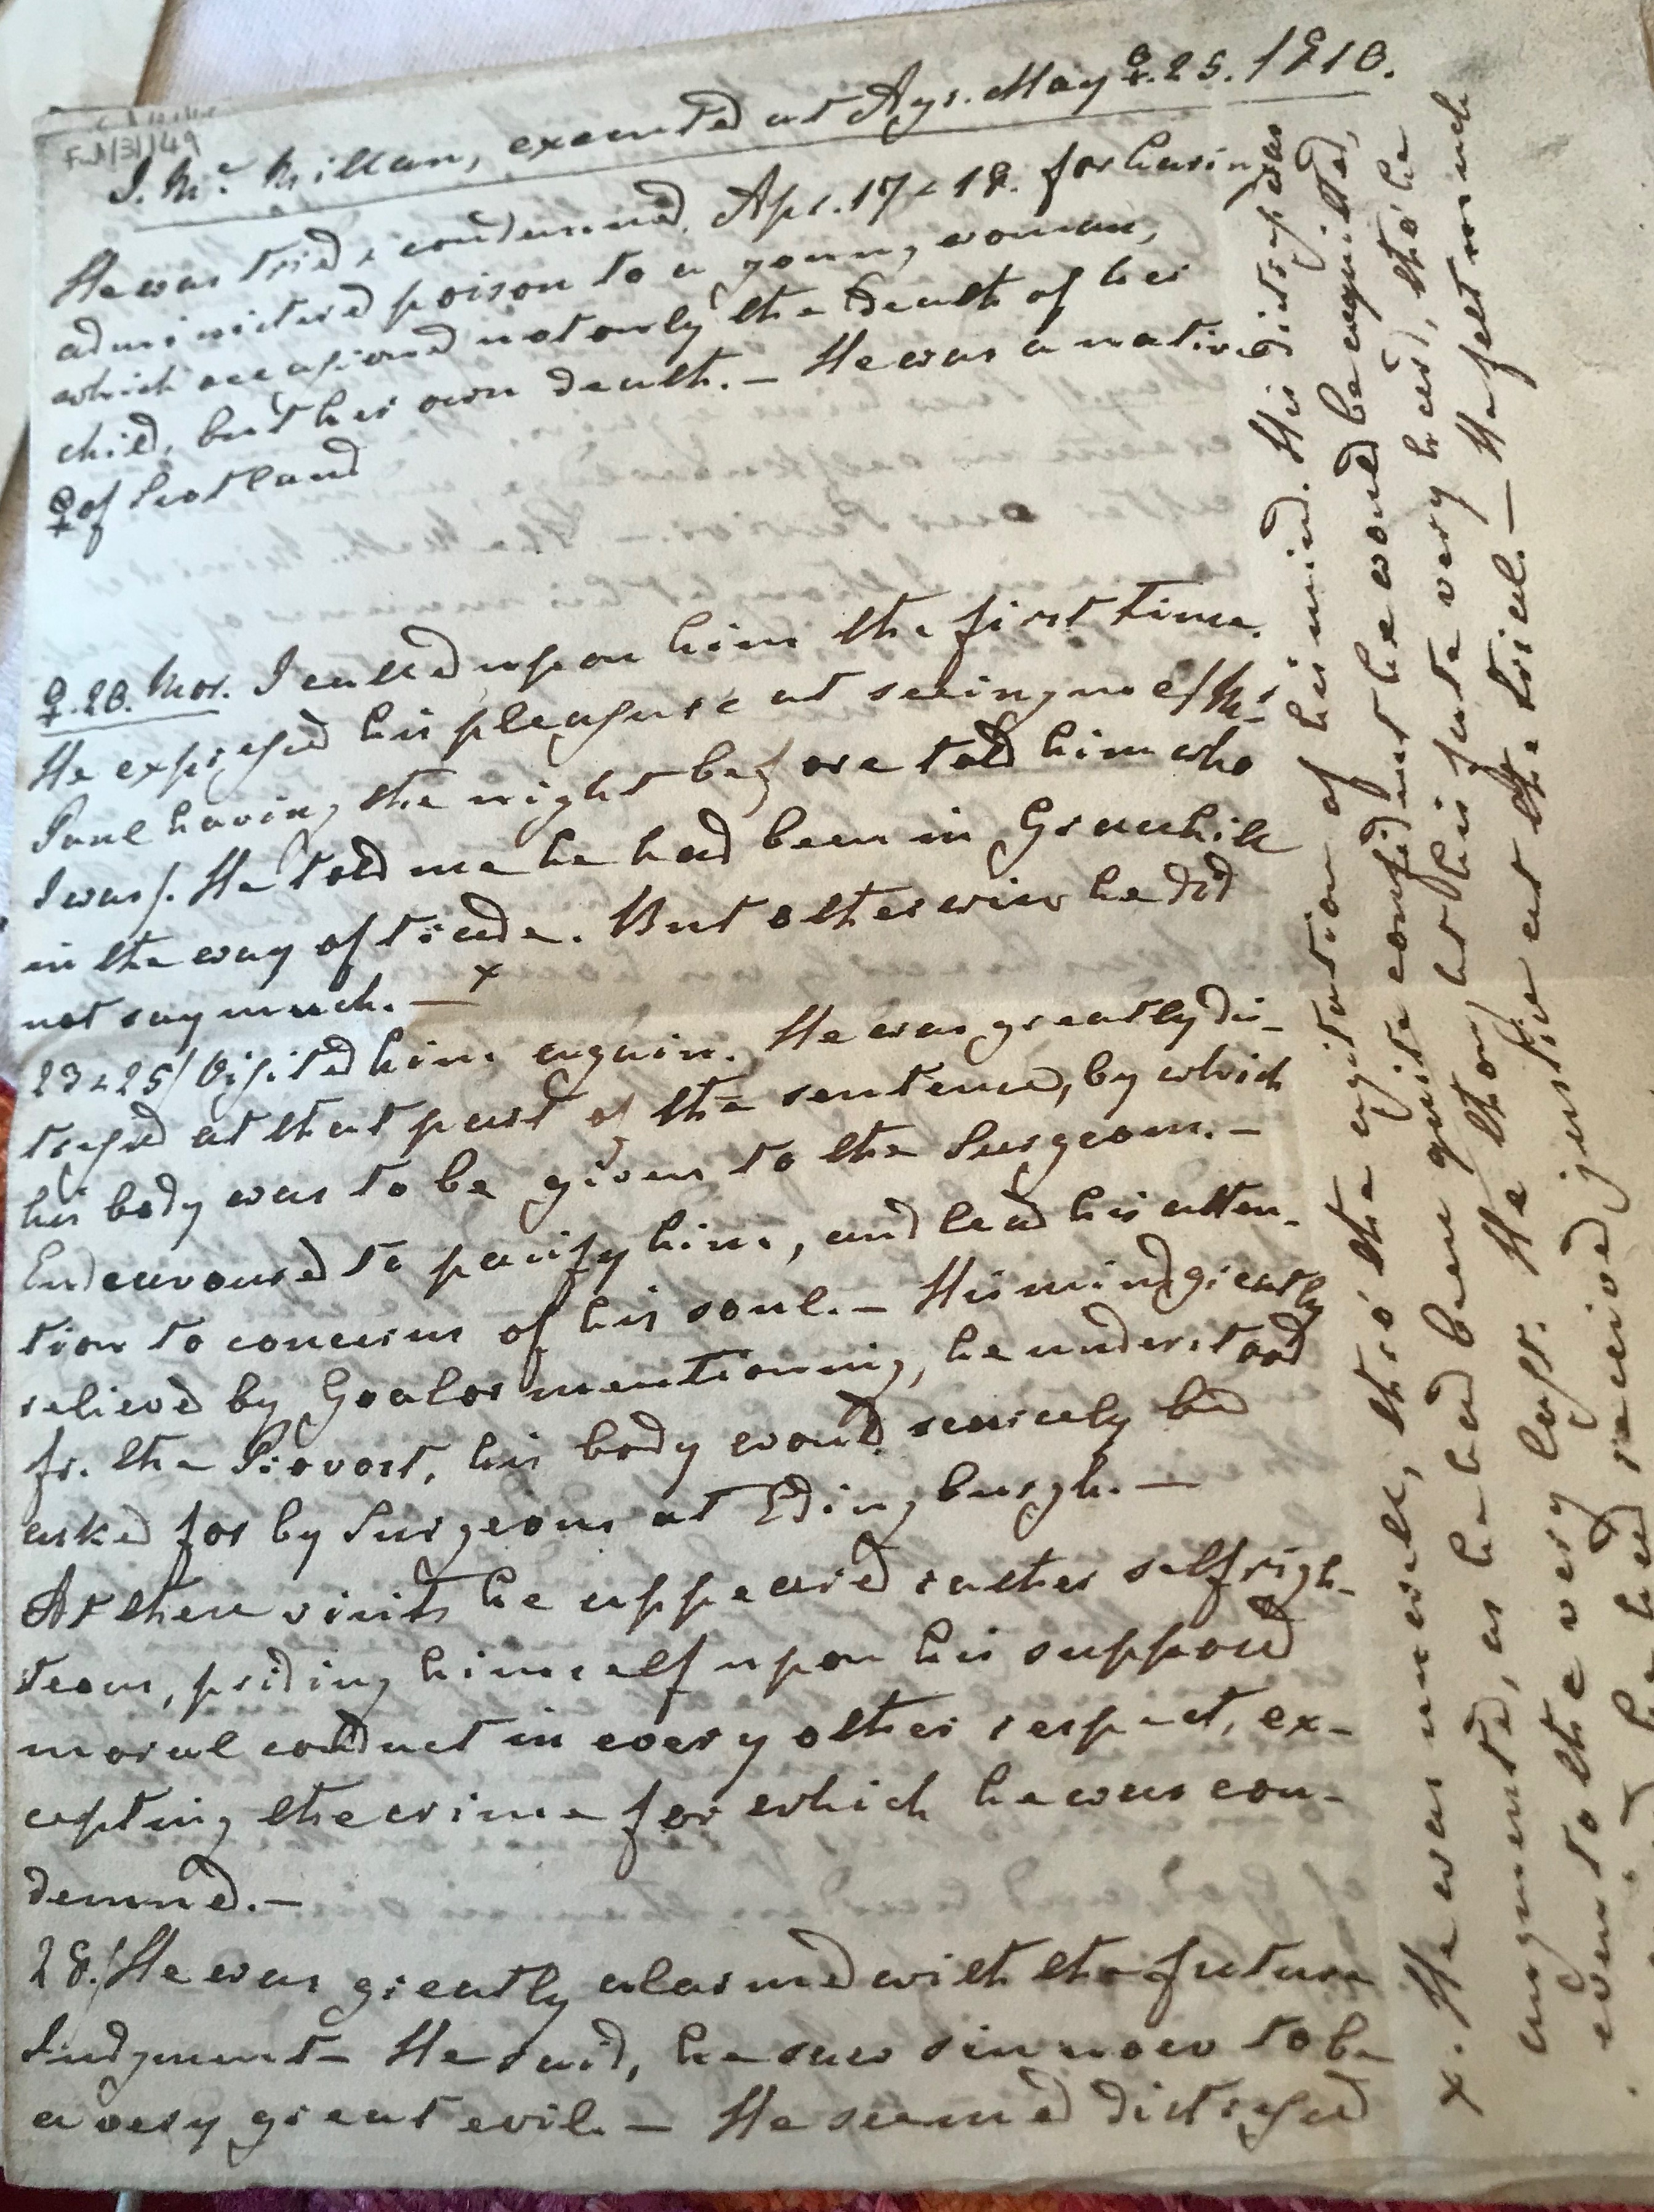 Ful/3/1/49
J. Mc. Millan, executed at Ayr. May ♀. 25. 1810.
He was tried & condemned, Apr. 17 & 18. for having
administered poison to a young woman,
which occasioned not only the death of her
child, but her own death. — He was a native
of Scotland
♀. 20. Mor. I called upon him the first time.
He expressed his pleasure at seeing me /Mr.
Paul having the night before told him who
I was/. He told me he had been in Graachill
in the way of trade. But otherwise he did
not say much. — x
23 & 25/ Visited him again. He was greatly dis-
tressed at that part of the sentence, by which
his body was to be given to the Surgeons. —
Endeavoured to pacify him, and lead his atten-
tion to concerns of his soul. — His mind greatly
relieved by Goalor mentioning, he understood
fr. the Provost, his body would scarcely be
asked for by Surgeons at Edingburgh. —
At these visits he appeared rather selfrigh-
teous, priding himself upon his supposed
moral conduct in every other respect, ex-
cepting the crime for which he was con-
demned. —
28./ He was greatly alarmed with the future
Judgment — He said, he saw sin now to be
a very great evil. — He seemed distressed
x. He was unwell, thro' the agitation of his mind. His distress was
augmented, as he had been quite confident he would be acquitted,
even to the very last. He thought his fate very hard, tho' he
had received justice at the trial. — He felt much